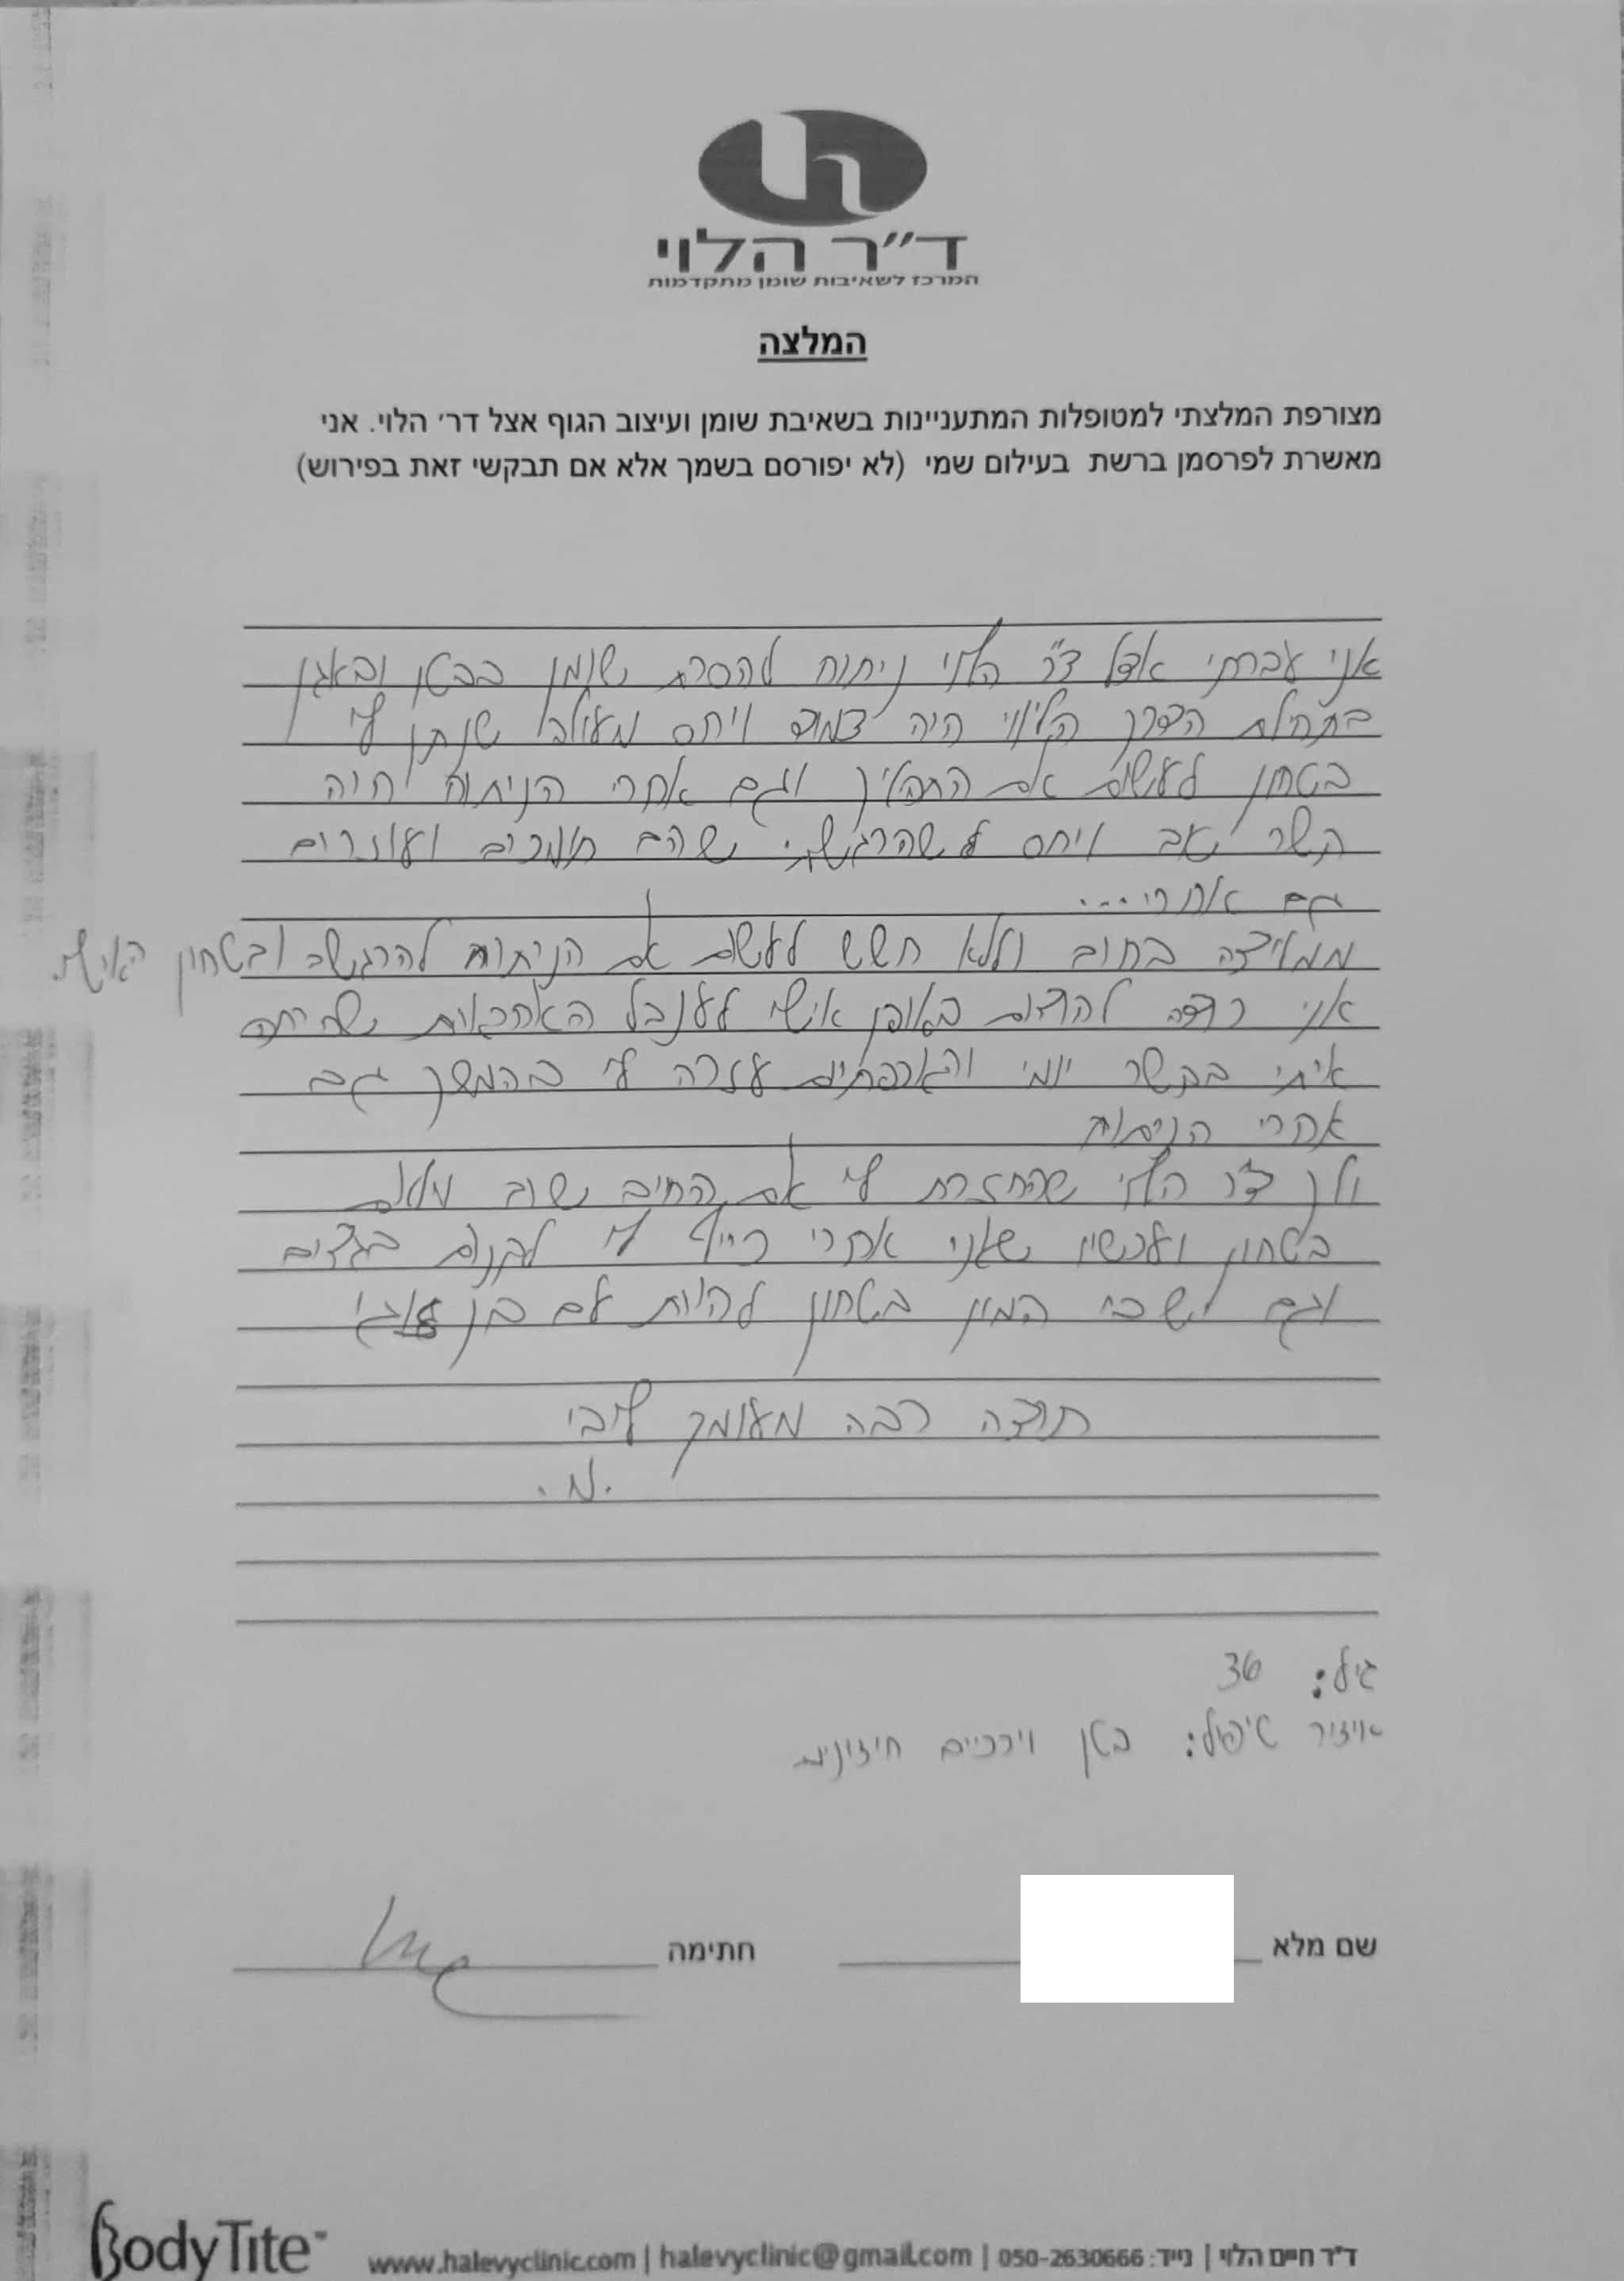 ד״ר הלוי
המרכז לשאיבות שומן מתקדמות
המלצה
מצורפת המלצתי למטופלות המתעניינות בשאיבת שומן ועיצוב הגוף אצל דר׳ הלוי. אני
מאשרת לפרסמן ברשת בעילום שמי (לא יפורסם בשמך אלא אם תבקשי זאת בפירוש)
אני עברתי אצל ד״ר הלוי ניתוח להסרת שומן בבטן ובאגן
בתחילת הדרך הליווי היה צמוד ויחס מעולה שנתן לי
בטחון לעשות את התהליך וגם אחרי הניתוח היה
קשר טוב ויחס שהרגשתי שהם תומכים ועוזרים
גם אחרי...
ממליצה בחום וללא חשש לעשות את הניתוח להרגשה ובטחון האישי
אני רוצה להודות באופן אישי לענבל האחראית שהייתה
איתי בקשר יומי והאכפתיות עזרה לי בהמשך גם
אחרי הניתוח
ולך ד״ר הלוי שהחזרת לי את החיים שוב מלאת
בטחון ועכשיו שאני אחרי כייף לי לקנות בגדים
וגם יש בי המון בטחון להיות עם בן זוגי
תודה רבה מעומק ליבי
מ.
גיל: 36
איזור טיפול: בטן וירכיים חיצוניות
שם מלא
חתימה
BodyTite™
ד״ר חיים הלוי | נייד: 050-2630666 | halevyclinic@gmail.com | www.halevyclinic.com